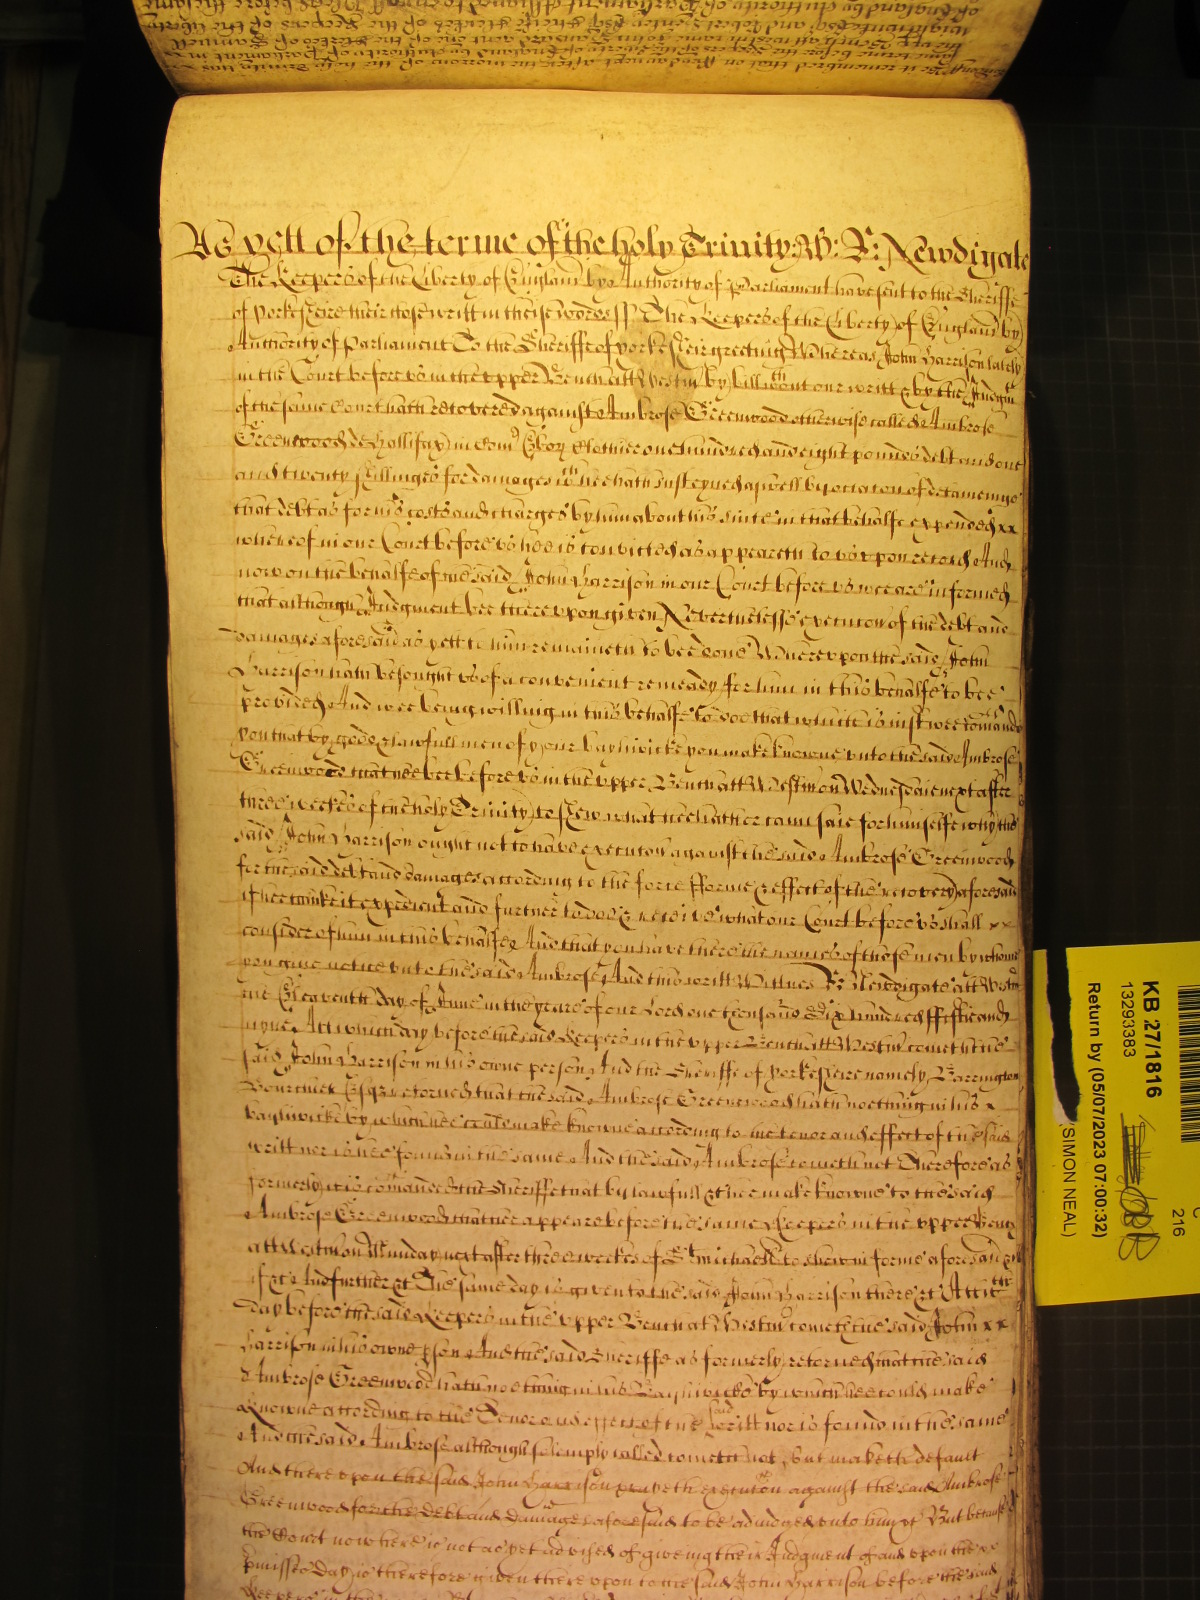 As yett of the terme of the holy Trinity: W: R: Newdigate
The Keepers of the Liberty of England by Authority of Parliament have sent to the Sheriffe
of Yorkesheire their close writt in theise wordes ss The Keepers of the Liberty of England by
Authority of Parliament To the Sheriffe of Yorkesheir greeting Whereas John Harrison lately
in the Court before us in the upper Bench att Westm by bill wthout our writt & by the Judgmt
of the same Court hath recovered against Ambrose Greenwood otherwise called Ambrose
Greenwood de Hallifax in Com Ebor Clothier one hundred and eight pounds debt and one
and twenty shillinges for damages wch hee hath susteyned aswell by occacon of deteineinge
that debt as for his costs and charges by him about his suite in that behalfe expended xx
whereof in our Court before us hee is convicted as appeareth to us upon record And
now on the behalfe of the said John Harrison in our Court before us wee are informed
that although Judgment bee thereupon given Neverthelesse execucon of the debt and
damages aforesaid as yett to him remaineth to bee done Whereupon the said John
Harrison hath besought us of a convenient remeady for him in this behalfe to bee
provided And wee being willing in this behalfe to doe that which is just wee comand
you that by good & lawfull men of your bayliwicke you make knowne unto the said Ambrose
Greenwood that hee bee before us in the upper Bench att Westm on Wednesdaie next after
three weekes of the holy Trinity to shew what hee hath or can saie for himselfe why the
said John Harrison ought not to have execucon against the said Ambrose Greenwood
for the said debt and damages according to the force fforme & effect of the recovery aforesaid
if hee thinke it expedient and further to doe & receive what our Court before us shall xx
consider of him in this behalfe And that you have there the names of those men by whome
you give notice unto the said Ambrose And this writt Wittnes R: Newdigate att Westm
the Eleaventh day of June in the yeare of our Lord one thousand Six hundred ffiftie and
nyne Att which day before the said Keepers in the upper Bench att Westm cometh the
said John Harrison in his owne person And the Sheriffe of Yorkesheire namely Barrington
Bourchier Esqr retorned that the said Ambrose Greenwood hath noething in his x
bayliwicke by which hee could make knowne according to the tenor and effect of the said
writt nor is hee found in the same And the said Ambrose cometh not Therefore as
formerly it is comanded the Sheriffe that by lawfull &c hee make knowne to the said
Ambrose Greenwood that hee appeare before the same Keepers in the upper Bench
att Westm on Munday next after three weekes of St Michaell to shew in forme aforesaid &c
if &c And further &c The same day is given to the said John Harrison there &c Att
day before the said Keepers in the upper Bench at Westm cometh the said John xx
Harrison in his owne pson And the said Sheriffe as formerly retorned that the said
Ambrose Greenwood hath noething in his Bayliwicke by which hee could make
knowne according to the Tenor and effect of the said writt nor is found in the same
And the said Ambrose although solemply called cometh not, but maketh default
And thereupon the said John Harrison prayeth execucon against the said Ambrose
Greenwood for the debt and damages aforesaid to be adiudged unto him &c But because
the Court now here is not as yet advised of giveing their Judgment of and upon the xx
pmisses day is therefore given thereupon to the said John Harrison before the said
KB 27/1816
13293383
Return by (05/07/2023 07:00:32)
SIMON NEAL)
216